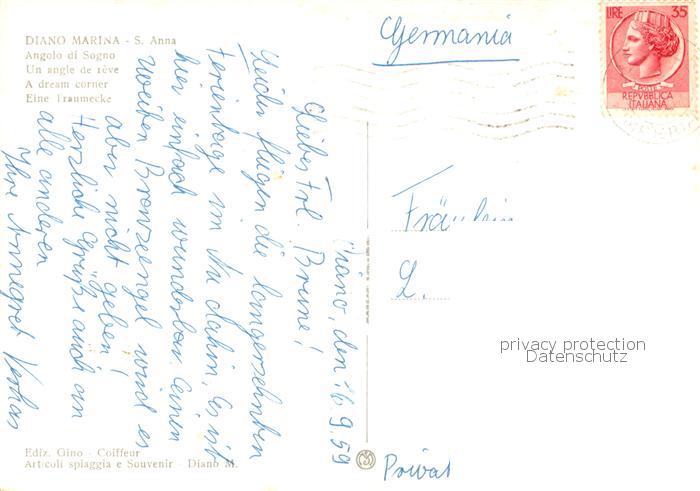 DIANO MARINA - S. Anna
Angolo di Sogno
Un angle de rêve
A dream corner
Eine Traumecke
Germania
LIRE 35
POSTE
REPVBBLICA
ITALIANA
Diano, den 16.9.59
Liebes Frl. Brune!
Leider fliegen die langersehnten
Ferientage im Nu dahin. Es ist
hier einfach wunderbar. Einen
zweiten Bronzeengel wird es
aber nicht geben!
Herzliche Grüße auch an
alle anderen
Ihre Annegret
Fräulein
L.
privacy protection
Datenschutz
Privat
Ediz. Gino - Coiffeur
Articoli spiaggia e Souvenir - Diano M.